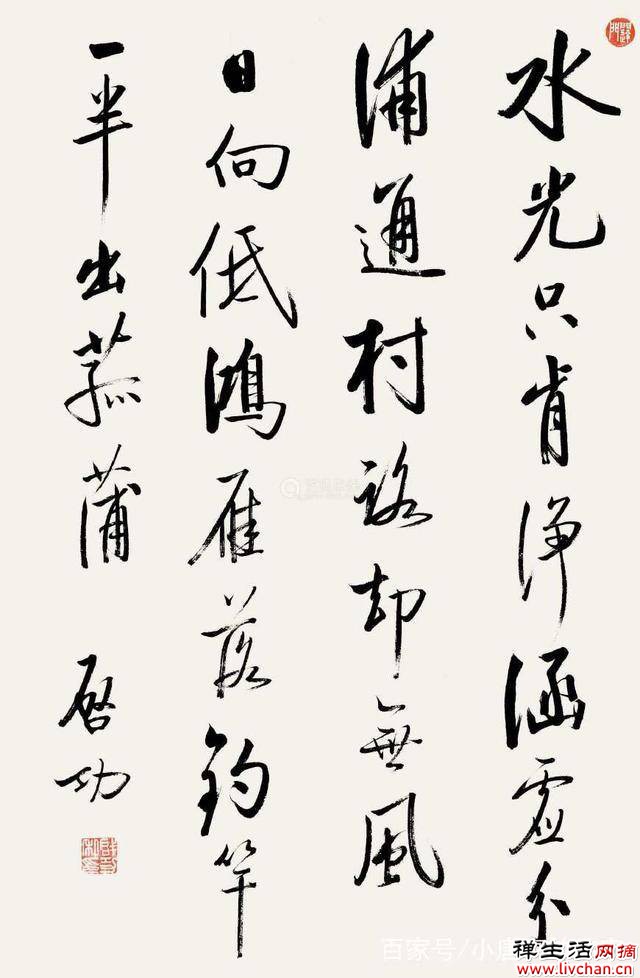 水光只肯浄涵虚分
浦通村路却無風
日向低鴻雁落釣竿
一半出菰蒲
启功
百家号/小唐
禅生活网摘
www.livchan.cn